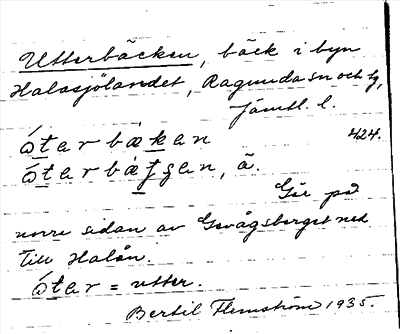 Utterbäcken, bäck i byn
Halasjölandet, Ragunda sn och tg,
Jämtl. l.
ó̱tarbäkan 424.
ó̱tarbätjan, ā.
Går på
norra sidan av Gevågsberget ned
till Halån.
ó̱tar = utter.
Bertil Flemström 1935.